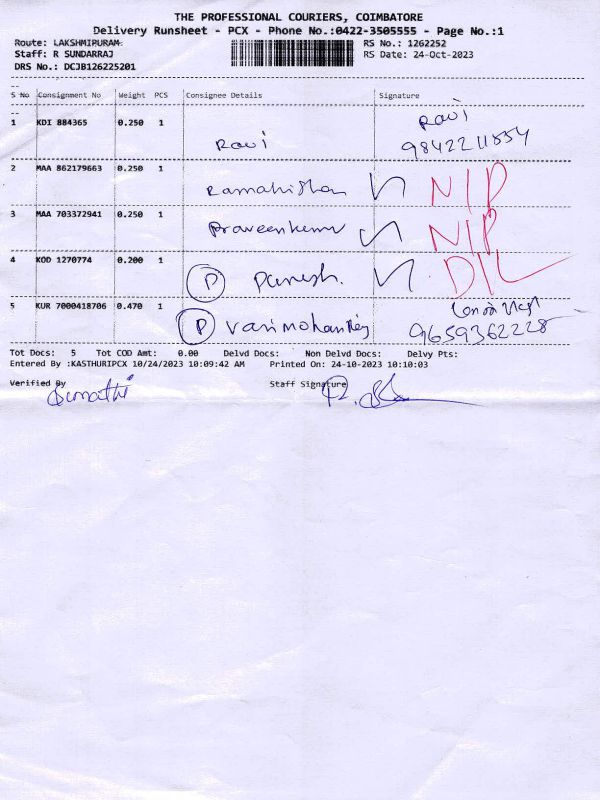 THE PROFESSIONAL COURIERS, COIMBATORE
Delivery Runsheet - PCX - Phone No.:0422-3505555 - Page No.:1
Route: LAKSHMIPURAM RS No.: 1262252
Staff: R SUNDARRAJ RS Date: 24-Oct-2023
DRS No.: DCJB126225201
S No Consignment No Weight PCS Consignee Details Signature
1 KDI 884365 0.250 1 Ravi Ravi
2 MAA 862179663 0.250 1 NIP
3 MAA 703372941 0.250 1 NIP
4 KOD 1270774 0.200 1 P DIL
5 KUR 7000418706 0.470 1 P 9659362228
Tot Docs: 5 Tot COD Amt: 0.00 Delvd Docs: Non Delvd Docs: Delvy Pts:
Entered By :KASTHURIPCX 10/24/2023 10:09:42 AM Printed On: 24-10-2023 10:10:03
Verified By Staff Signature
Sumathi